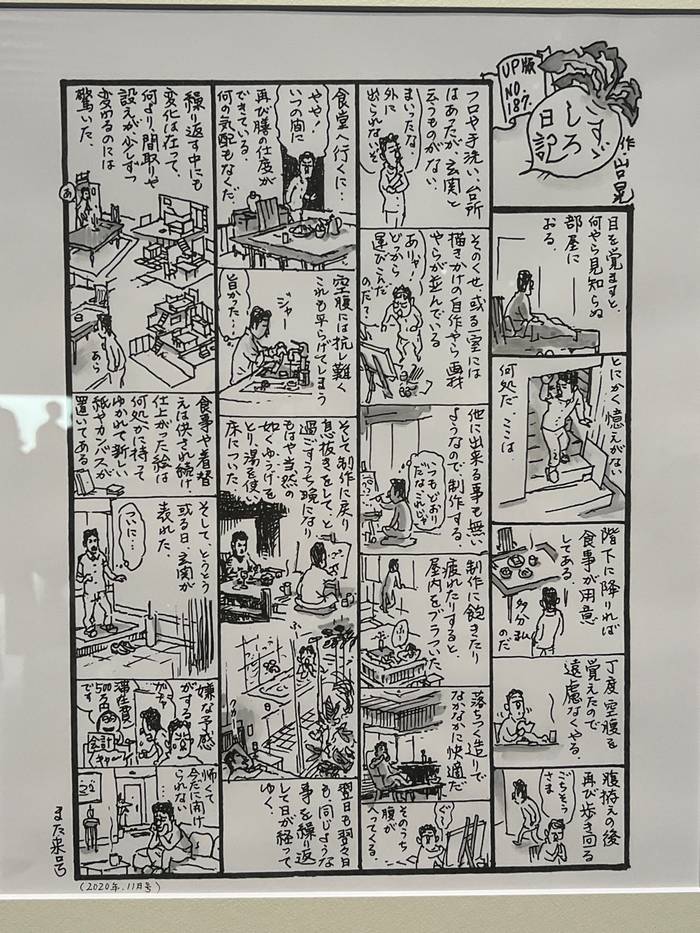 UP版
NO.
187.
すゞしろ
日記
作・山口晃
目を覚ますと、
何やら見知らぬ
部屋に
おる。
とにかく憶えがない
何処だ、ここは
階下に降りれば
食事が用意
してある。
多分私
のだ
丁度空腹を
覚えたので
遠慮なくやる。
腹拵えの後
再び歩き回る
ごちそう
さま
フロや手洗い、台所
はあったが、玄関と
云うものがない。
まいったな
外に
出られないぞ
そのくせ、或る一室には
描きかけの自作やら画材
やらが並んでいる
ありゃ!
どっから
運びこんだ
のだ?
他に出来る事も無い
ようなので、制作する。
いつもどおり
だな これじゃ
制作に飽きたり
疲れたりすると、
屋内をブラブラついた。
落ちつく造りで
なかなかに快適だ
ぐ〜
そのうち
腹が
へってくる。
食堂へ行くに…
やや!
いつの間に
再び膳の仕度が
できている。
何の気配もなくだ。
空腹には抗し難く
これも平らげてしまう
ジャー
旨かった…
そして制作に戻り
息抜きをして、と
過ごすうち晩になり
もはや当然の
如くゆうげを
とり、湯を使い
床についた。
翌日も翌々日
も、同じような
事を繰り返
して日が経って
ゆく。
繰り返す中にも
変化は在って、
何より、間取りや
設えが少しずつ
変わるのには
驚いた。
あ
あら
食事や着替
えは供され続け、
仕上がった絵は
何処かに持って
ゆかれて新しい
紙やカンバスが
置いてある
そして、とうとう
或る日、玄関が
表れた、
ついに…
嫌な予感
がする
がちゃ
滞在費
500万円
です
会計
キャ〜
怖くて
今だに開け
られない
また来月号
(2020年.11月号)